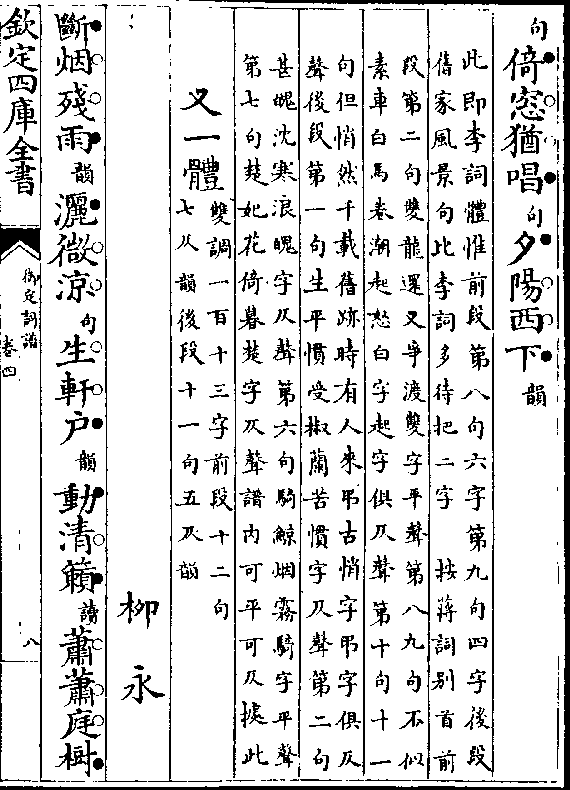 句倚窓猶唱句夕陽西下韻
此即李詞體惟前段第八句六字第九句四字後段
舊家風景句比李詞多待把二字　按蔣詞别首前
段第二句雙龍還又爭渡雙字平聲第八九句不似
素車白馬卷潮起怒白字起字俱仄聲第十句十一
句但悄然千載舊跡時有人來弔古悄字弔字俱仄
聲後段第一句生平慣受椒蘭苦慣字仄聲第二句
甚魄沈寒浪魄字仄聲第六句騎鯨烟霧騎字平聲
第七句楚妃花倚暮楚字仄聲譜内可平可仄㨿此
又一體雙調一百十三字前段十二句
七仄韻後段十一句五仄韻
柳永
斷烟殘雨韻灑微涼句生軒户韻動清籟讀蕭蕭庭樹
欽定四庫全書
御定詞譜
卷四
八